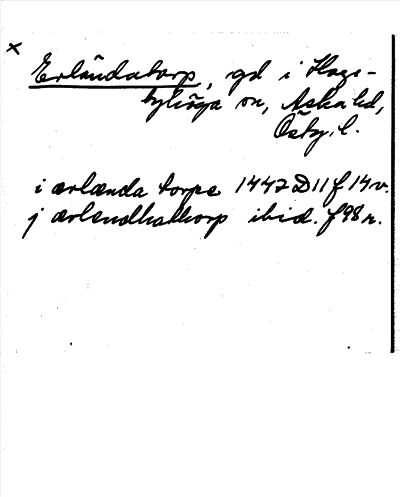 x
Erlåndatorp, gd i Hage-
byhöga sn, Aska hd,
Östg. l.
i ærlænda torpe 1447 D 11 f 14 v.
j ærlendhathorp ibid. f 98 r.